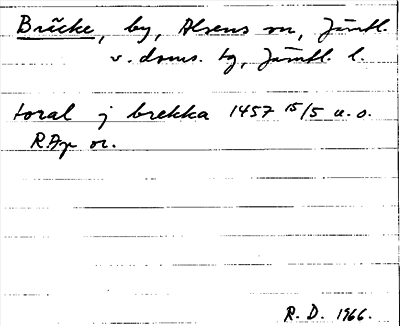 Bräcke, by, Alsens sn, Jämtl.
v. doms. tg, Jämtl. l.
toral j brekka 1457 15/5 u. o.
RAp or.
R. D. 1966.